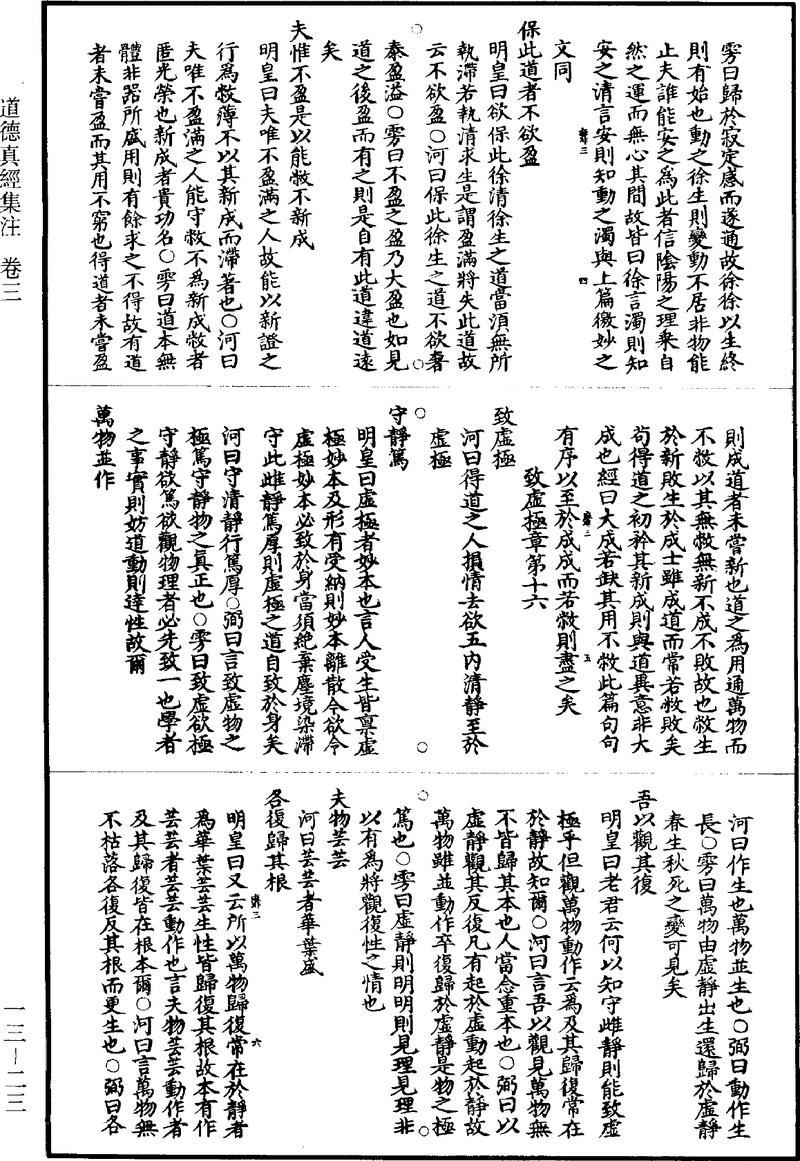 雱曰歸於寂定感而遂通故徐徐以生終
則有始也動之徐生則變動不居非物能
止夫誰能安之為此者信陰陽之理乘自
然之運而無心其間故皆曰徐言濁則知
安之清言安則知動之濁與上篇徼妙之
文同
保此道者不欲盈
明皇曰欲保此徐清徐生之道當須無所
執滯若執清求生是謂盈滿將失此道故
云不欲盈○河曰保此徐生之道不欲奢
泰盈溢○雱曰不盈之盈乃大盈也如見
道之後盈而有之則是自有此道違道遠
矣
夫惟不盈是以能敝不新成
明皇曰夫唯不盈滿之人故能以新證之
行為敝薄不以其新成而滯著也○河曰
夫唯不盈滿之人能守敝不為新成敝者
匿光榮也新成者貴功名○雱曰道本無
體非器所盛用則有餘求之不得故有道
者未嘗盈而其用不窮也得道者未嘗盈
則成道者未嘗新也道之為用通萬物而
不敝以其無敝無新不成不敗故也敝生
於新敗生於成士雖成道而常若敝敗矣
苟得道之初矜其新成則與道異意非大
成也經曰大成若缺其用不敝此篇句句
有序以至於成成而若敝則盡之矣
致虛極章第十六
致虛極
河曰得道之人損情去欲五內清靜至於
虛極
守靜篤
明皇曰虛極者妙本也言人受生皆稟虛
極妙本及形有受納則妙本離散今欲令
虛極妙本必致於身當須絕棄塵境染滯
守此雌靜篤厚則虛極之道自致於身矣
河曰守清靜行篤厚○弼曰言致虛物之
極篤守靜物之真正也○雱曰致虛欲極
守靜欲篤欲觀物理者必先致一也學者
之事實則妨道動則違性故爾
萬物並作
河曰作生也萬物並生也○弼曰動作生
長○雱曰萬物由虛靜出生還歸於虛靜
春生秋死之變可見矣
吾以觀其復
明皇曰老君云何以知守雌靜則能致虛
極乎但觀萬物動作云為及其歸復常在
於靜故知爾○河曰言吾以觀見萬物無
不皆歸其本也人當念重本也○弼曰以
虛靜觀其反復凡有起於虛動起於靜故
萬物雖並動作卒復歸於虛靜是物之極
篤也○雱曰虛靜則明明則見理見理非
以有為將觀復性之情也
夫物芸芸
河曰芸芸者華葉盛
各復歸其根
明皇曰又云所以萬物歸復常在於靜者
為華葉芸芸生性皆歸復其根故本有作
芸芸者芸芸動作也言夫物芸芸動作者
及其歸復皆在根本爾○河曰言萬物無
不枯落各復反其根而更生也○弼曰各
道德真經集注 卷三
一三—二三